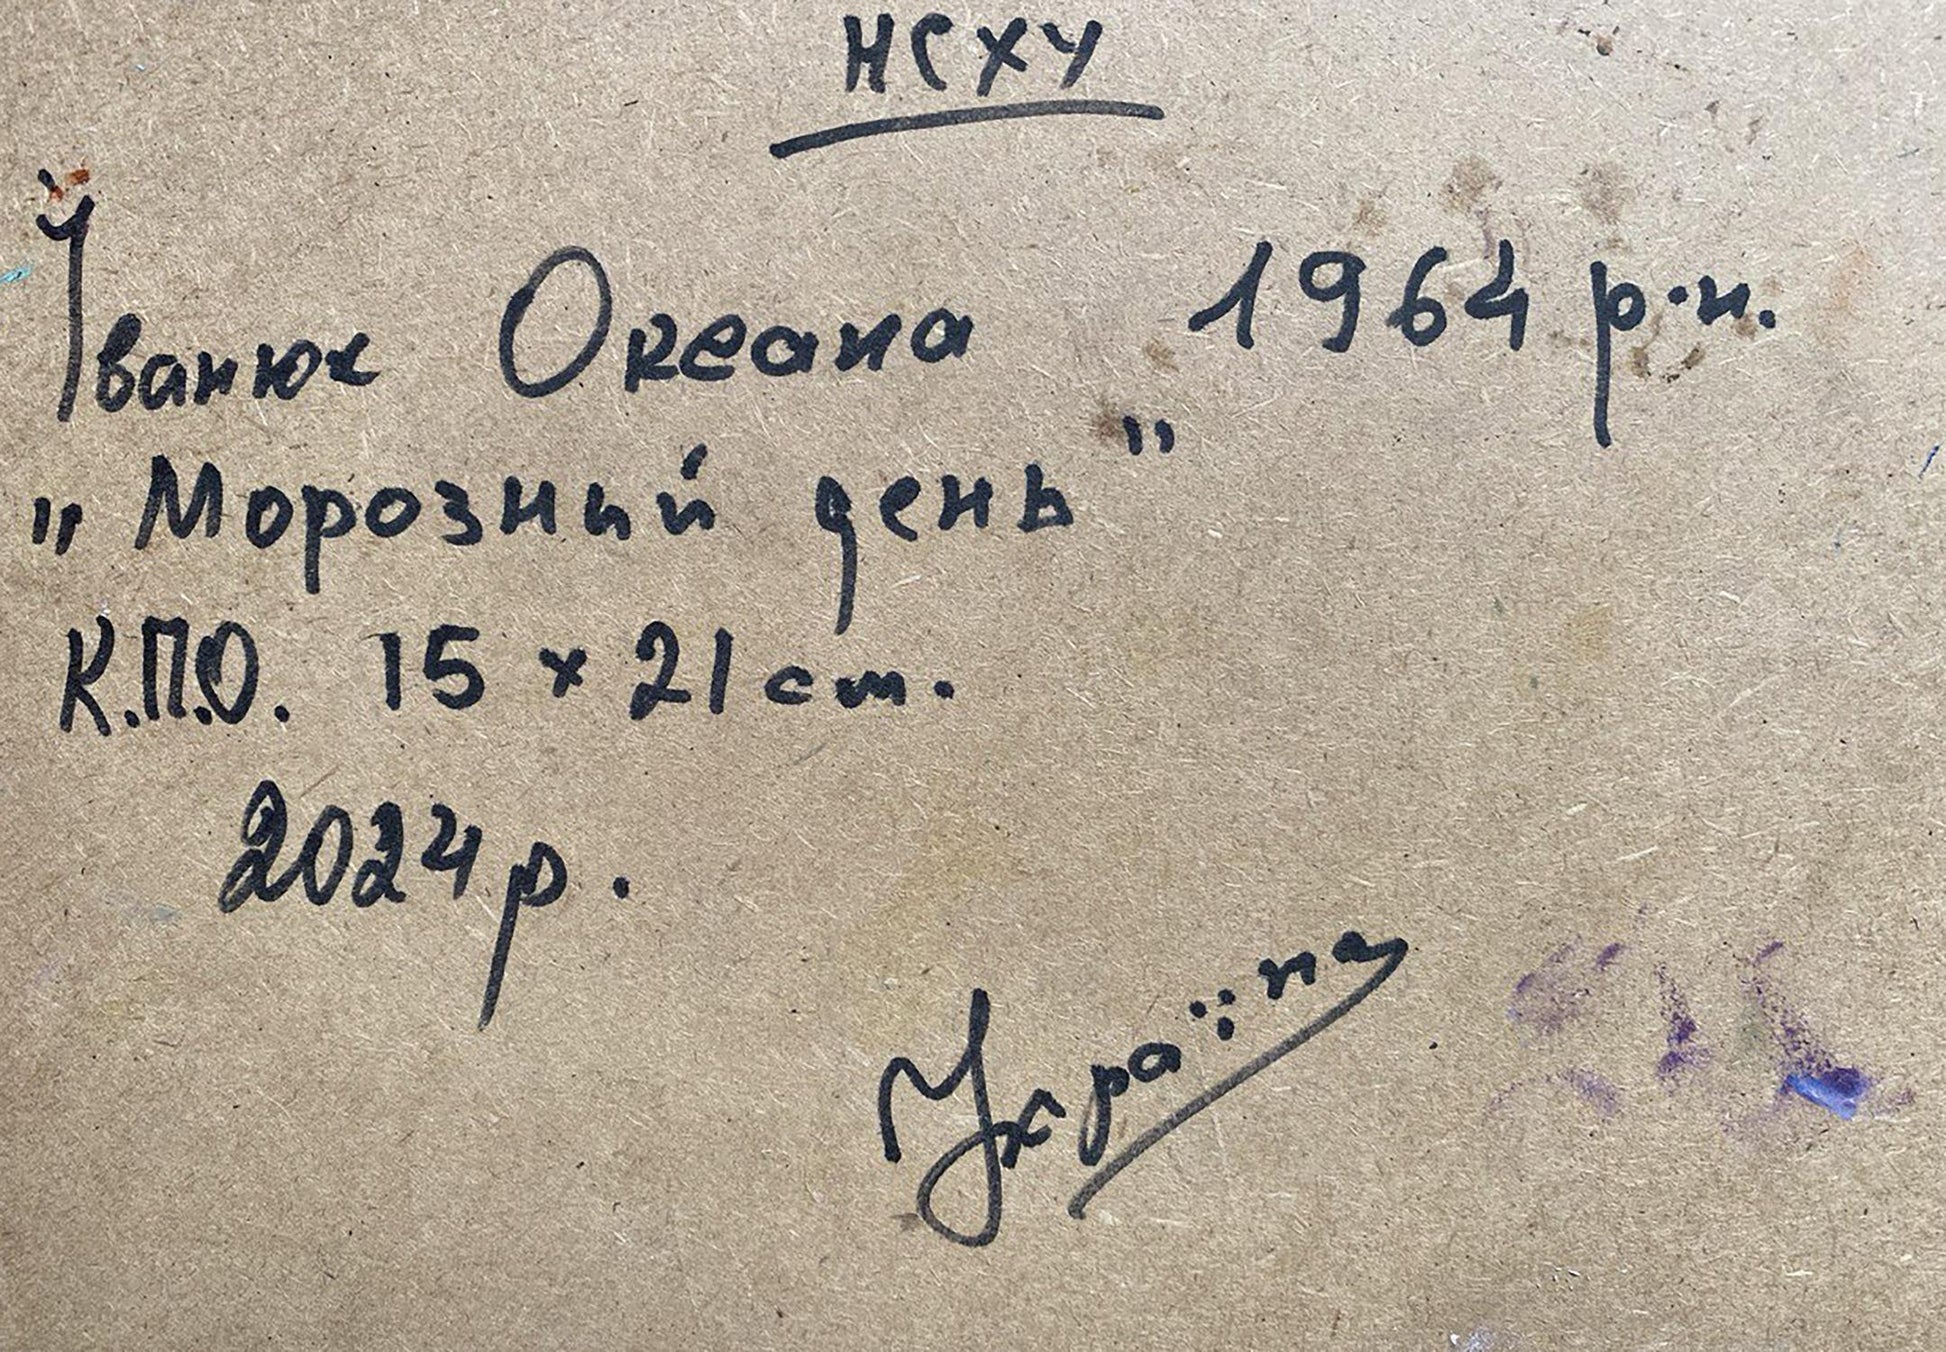 НСХУ
Іванюк Океана 1964 р.н.
„Морозный день"
К.П.О. 15 x 21 см.
2024р.
Україна